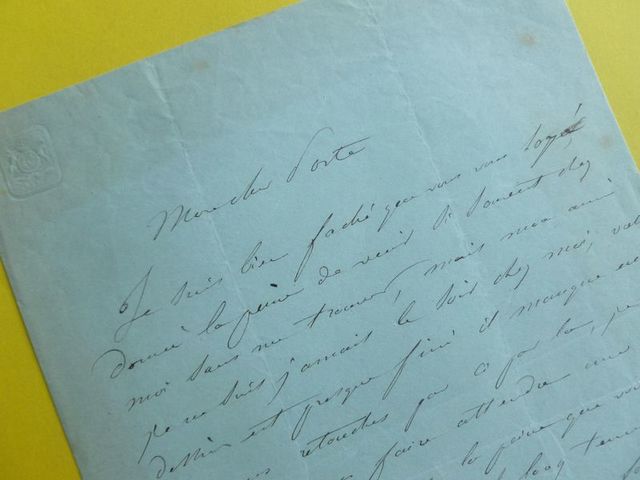 Mon cher Porte
Je suis bien faché que vous vous soyé
donné la peine de venir si souvent chez
moi sans me trouver, mais mon ami
je ne suis jamais le soir chez moi, votre
dessin est presque fini il manque en
retouches par ci par la,
faire attendre une
la peine que vous